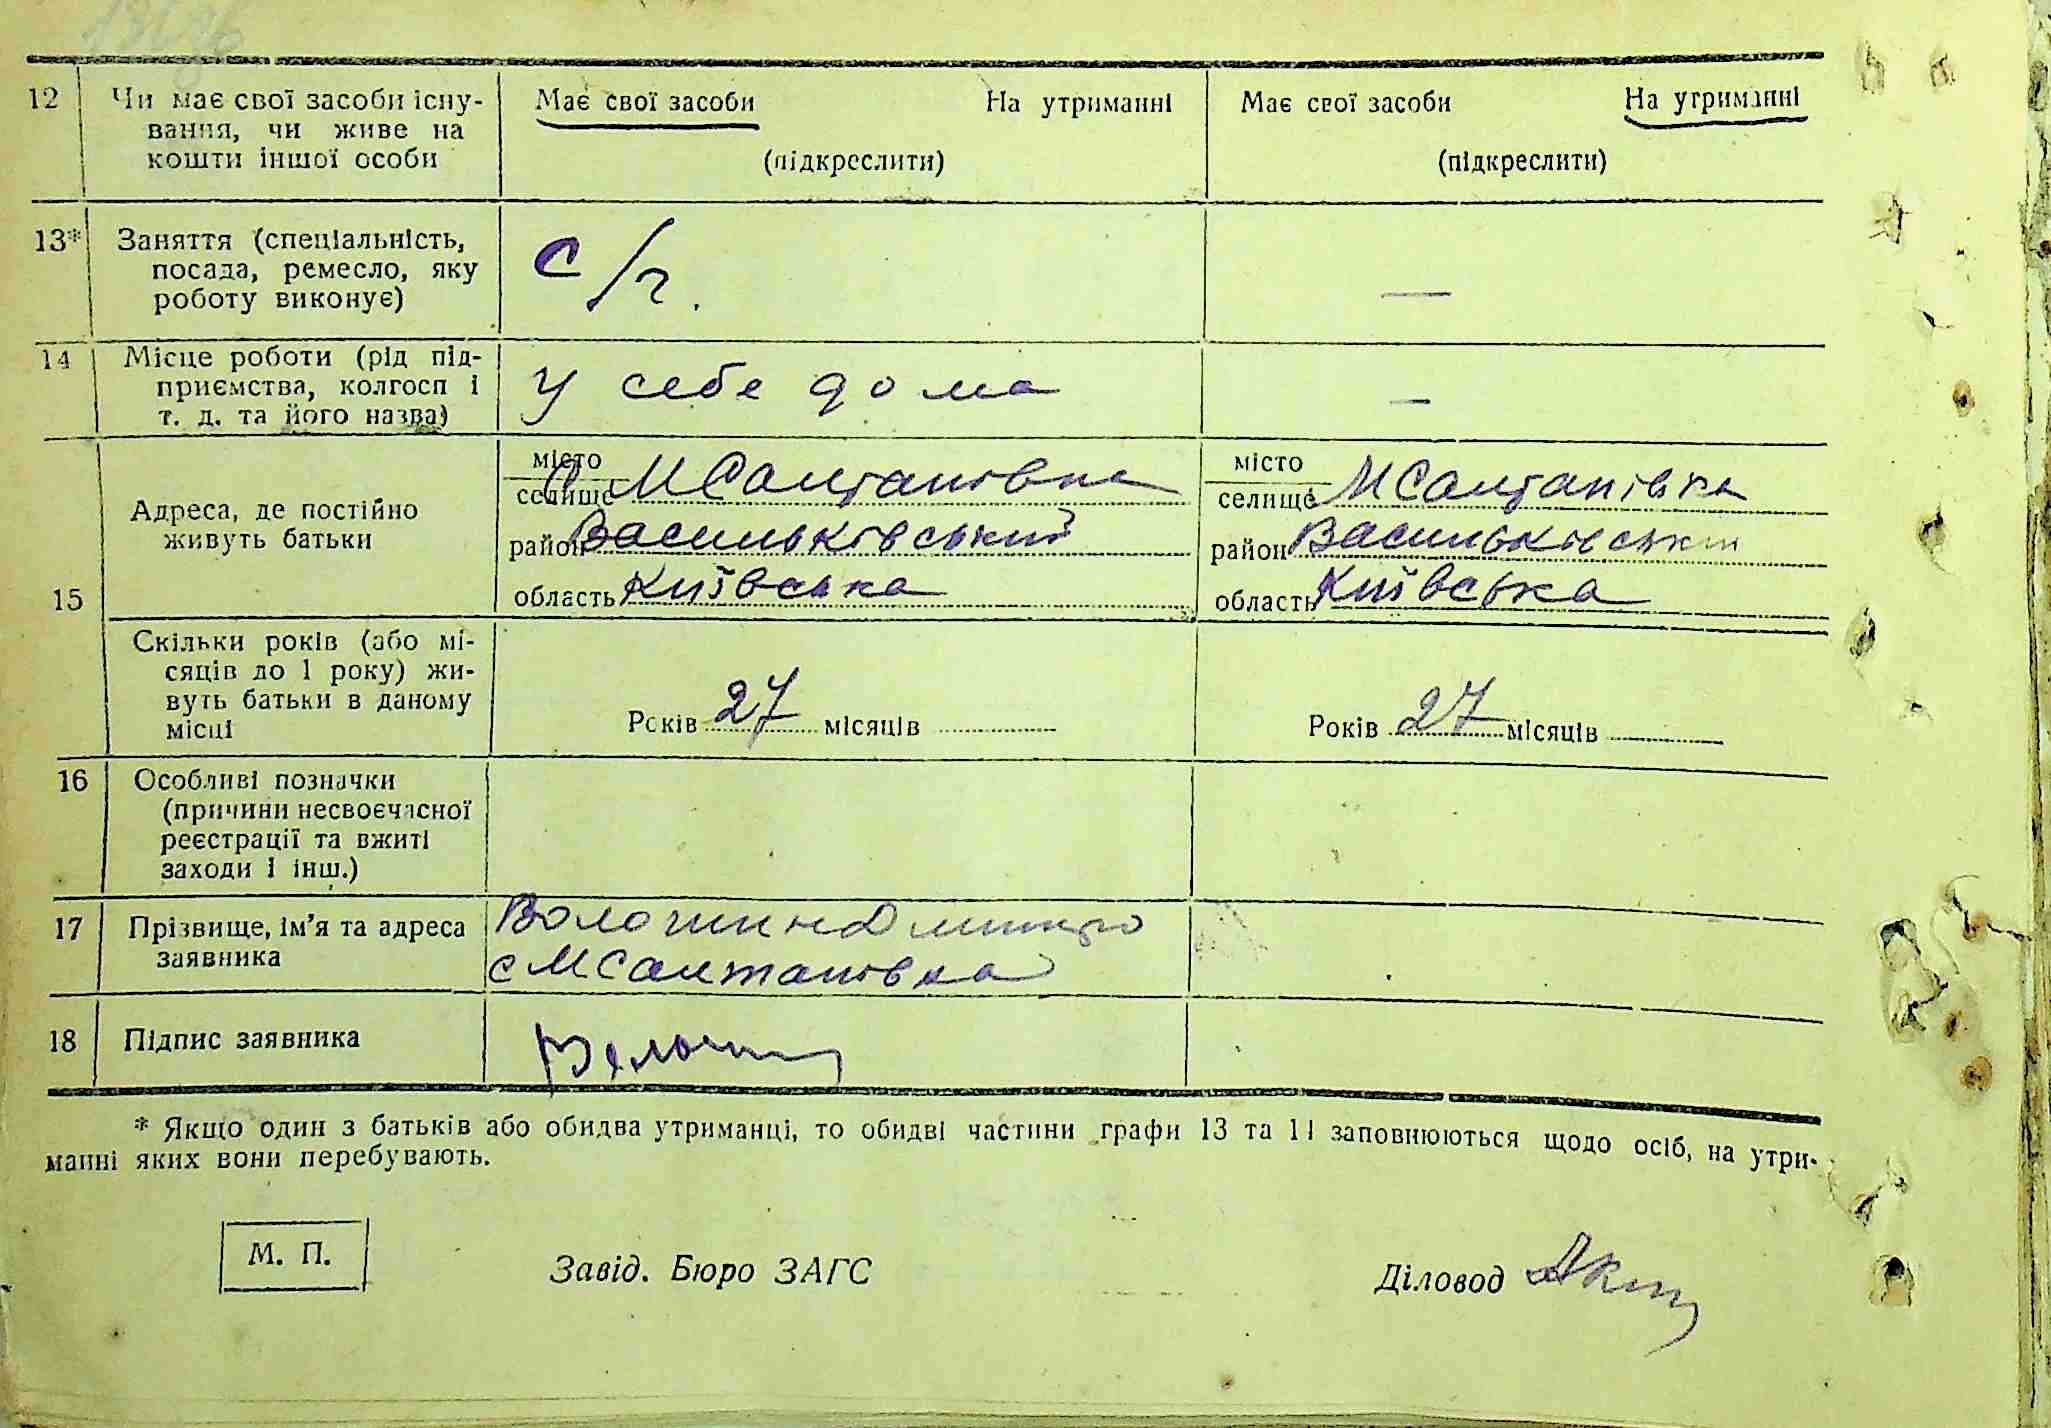 12 Чи має свої засоби існу-
вання, чи живе на
кошти іншої особи
Має свої засоби На утриманні
(підкреслити)
Має свої засоби На утриманні
(підкреслити)
13* Заняття (спеціальність,
посада, ремесло, яку
роботу виконує)
с/г. —
14 Місце роботи (рід під-
приємства, колгосп і
т. д. та його назва)
у себе дома —
15 Адреса, де постійно
живуть батьки
місто
селище с МСалтанівка
район Васильківський
область Київська
місто
селище МСалтанівка
район Васильківський
область Київська
Скільки років (або мі-
сяців до 1 року) жи-
вуть батьки в даному
місці
Років 27 місяців
Років 27 місяців
16 Особливі позначки
(причини несвоєчасної
реєстрації та вжиті
заходи і інш.)
17 Прізвище, ім’я та адреса
заявника
Волошин Дмитро
с МСалтанівка
18 Підпис заявника
* Якщо один з батьків або обидва утриманці, то обидві частини графи 13 та 14 заповнюються щодо осіб, на утри-
манні яких вони перебувають.
М. П.
Завід. Бюро ЗАГС
Діловод